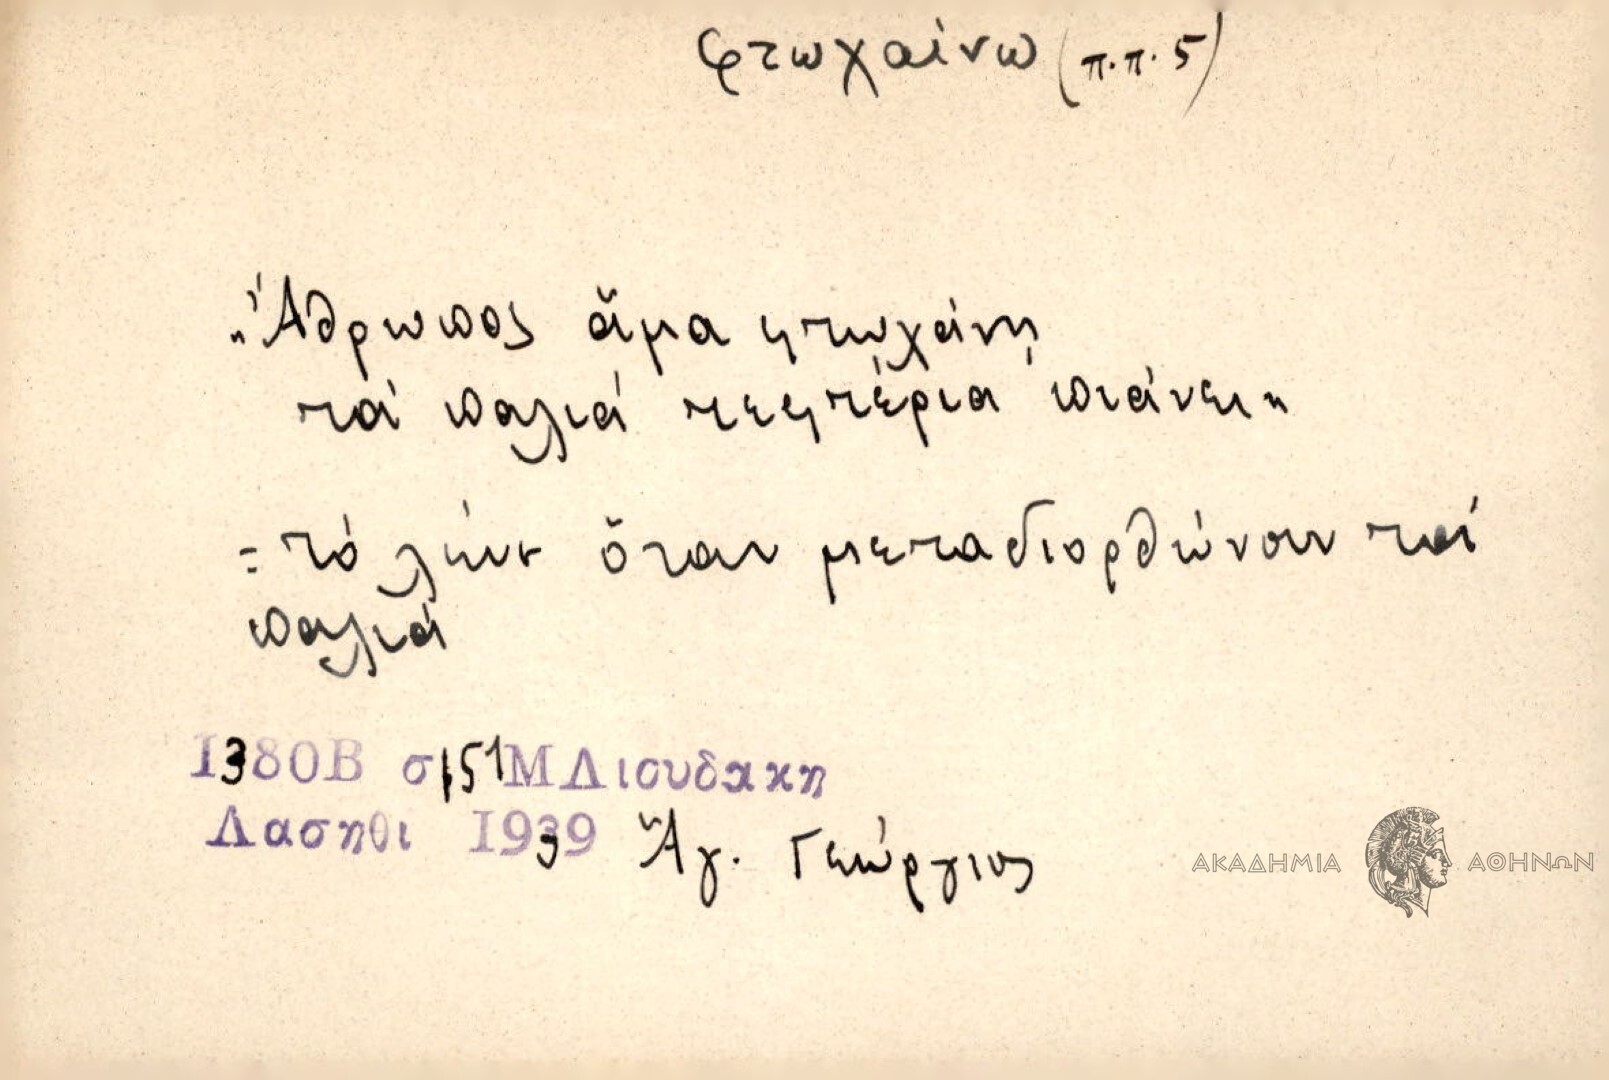 φτωχαίνω (π.π. 5)
„Ἄθρωπος ἅμα φτωχάνῃ
τά παλιά τεφτέρια πιάνει"
= τό λένε ὅταν μεταδιορθώνουν τά
παλιά
1380Β σ 151 Μ Λιουδακη
Λασηθι 1939 Ἅγ. Γεώργιος
ΑΚΑΔΗΜΙΑ ΑΘΗΝΩΝ